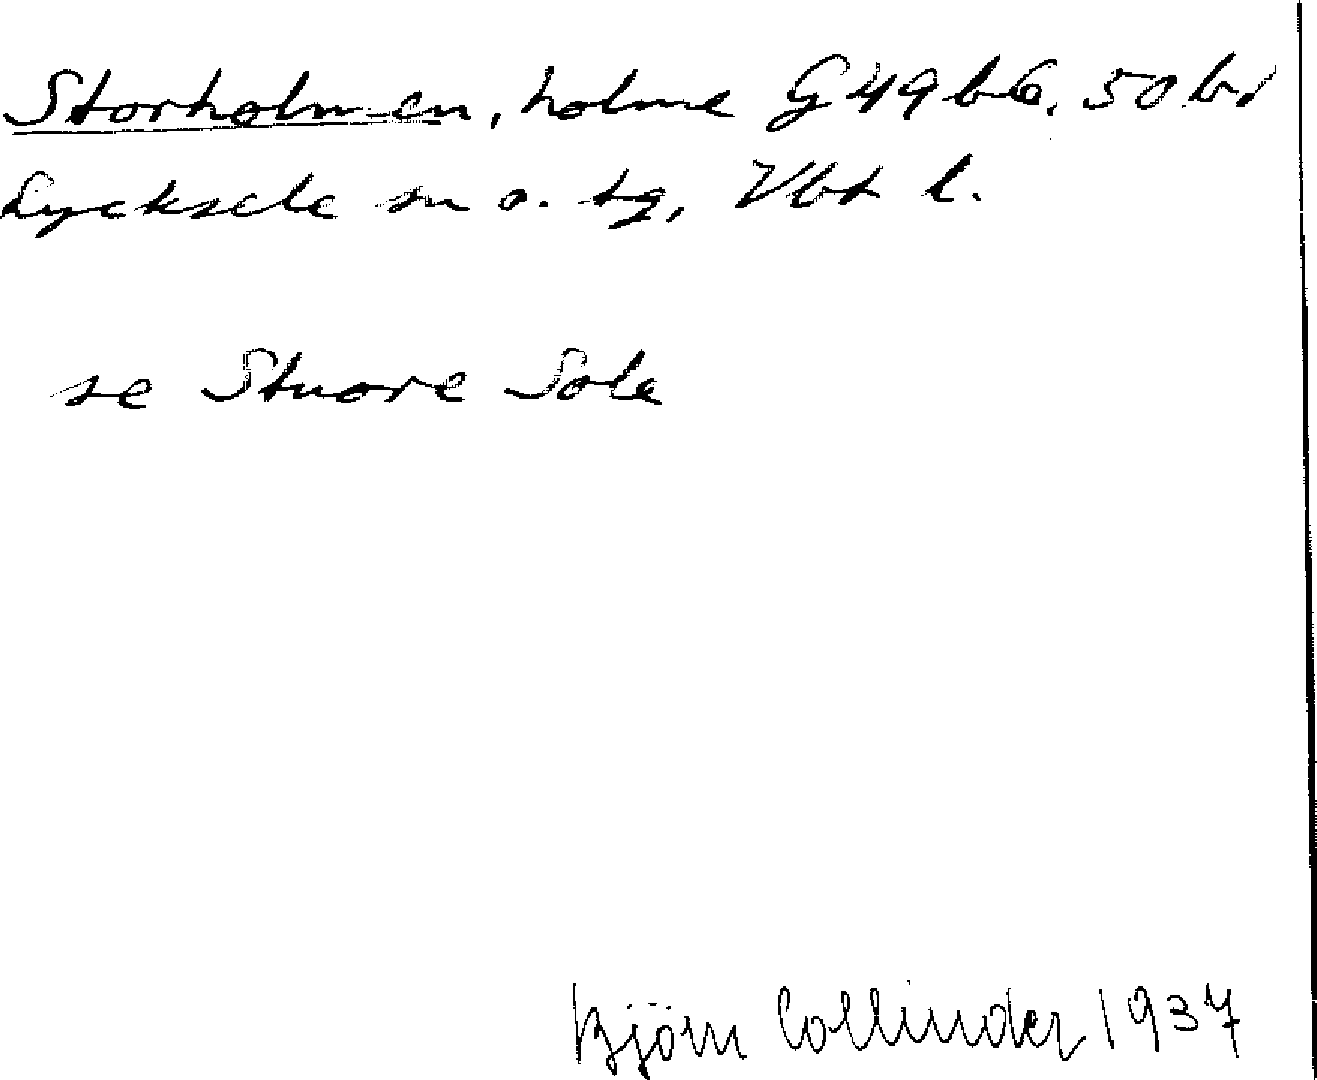 Storholmen, holme G 49 b6, 50 br
Lycksele sn o. tg, Vbt l.
se Stuore Sole
Björn Collinder 1937